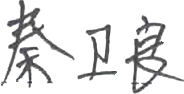 秦卫良